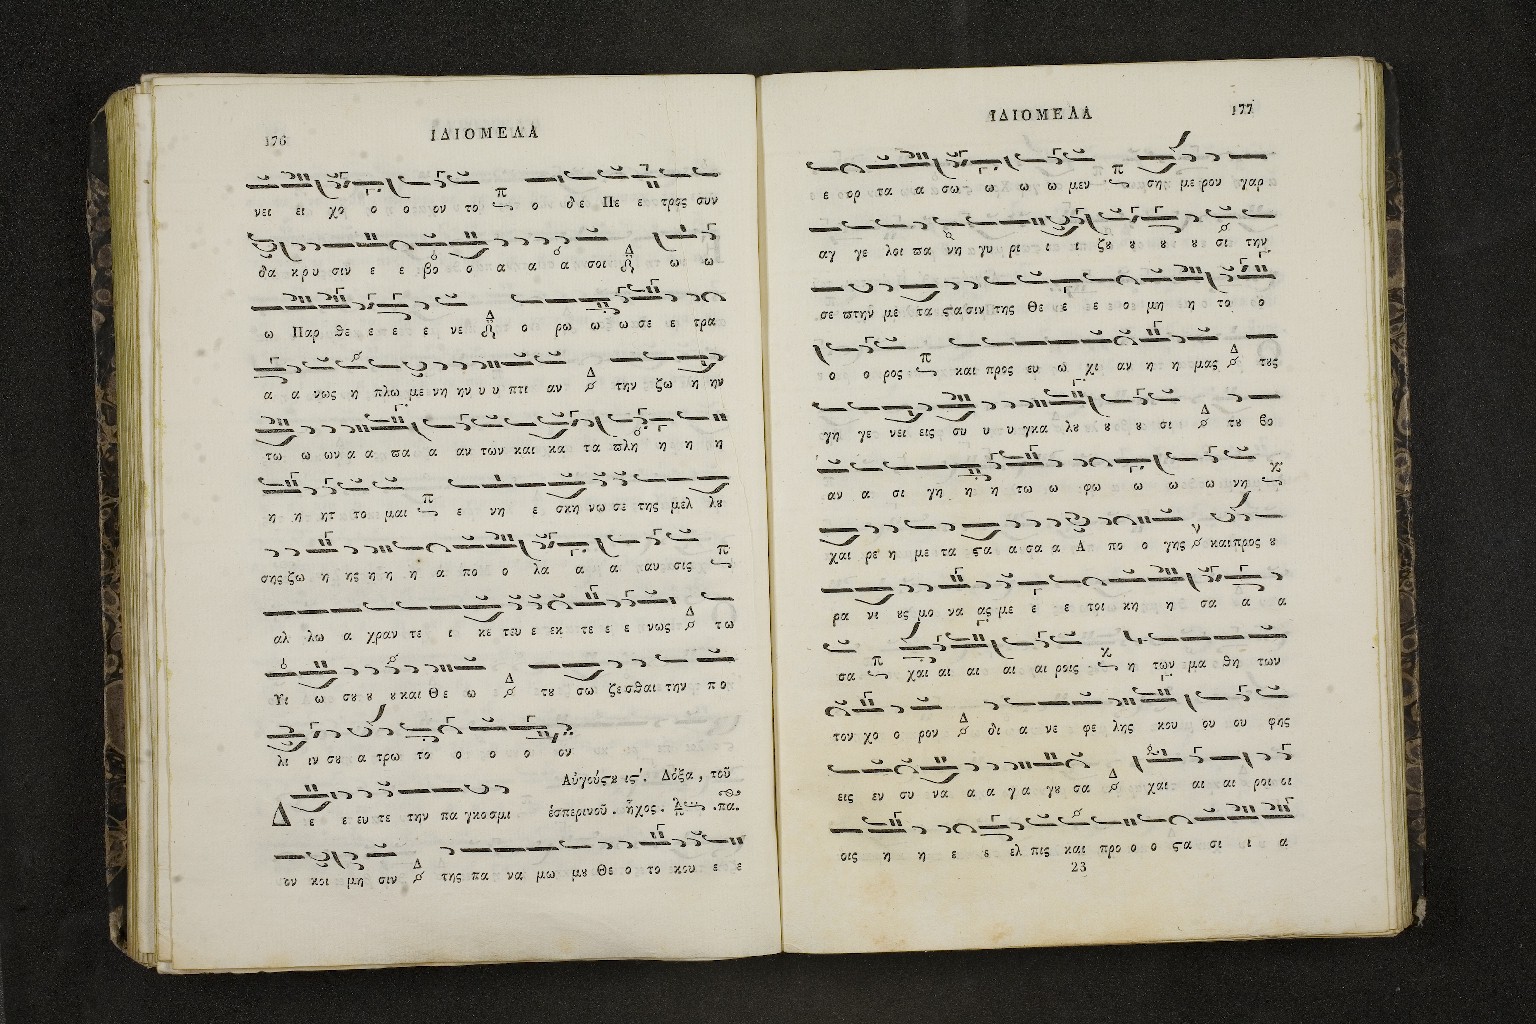 176
ΙΔΙΟΜΕΛΑ
νει ει χο ο ο ον το ο θε Πε ε τρος συν
θα κρυ σιν ε ε βο ο α α α σοι ω ω
ω Παρ θε ε ε ε νε ο ρω ω ω σε ε τρα
α α νως η πλω με νη ην υ υ πτι αν την ζω η ην
τω ω ων α α πα α αν των και κα τα πλη η η η
η η ητ το μαι ε νη ε σκη νω σε της μελ λȣ
σης ζω η ης η η η α πο ο λα α α αυ σις
αλ λω α χραν τε ι κε τευ ε εκ τε ε ε νως τω
Υι ω σȣ ȣ ȣ και Θε ω τȣ σω ζε σθαι την πο
λι ιν σȣ α τρω το ο ο ο ον
Αὐγούςȣ ις΄. Δόξα, τοῦ
Δ ε ε ευ τε την πα γκοσμι ἑσπερινοῦ. ἦχος. πα.
ον κοι μη σιν της πα να μω μȣ Θε ο το κου ε ε
ΙΔΙΟΜΕΛΑ
177
ε ορ τα α σω ω ω ω μεν ση με ρον γαρ
αγ γε λοι πα νη γυ ρι ι ι ζȣ ȣ ȣ ȣ σι την
σε πτην με τα ςα σιν της Θε ε ε ε ο μη η το ο
ο ο ρος και προς ευ ω χι αν η η μας τȣς
γη γε νει εις συ υ υ γκα λȣ ȣ ȣ ȣ σι τȣ βο
αν α σι γη η η τω ω φω ω ω ω νη
χαι ρε η με τα ςα α σα α Α πο ο γης και προς ȣ
ρα νι ȣς μο να ας με ε ε τοι κη η σα α α
σα χαι αι αι αι αι ροις η των μα θη των
τον χο ο ρον δι α νε φε λης κου ου ου φης
εις εν συ να α α γα γȣ σα χαι αι αι ροι οι
οις η η ε ε ελ πις και προ ο ο ςα σι ι α
23